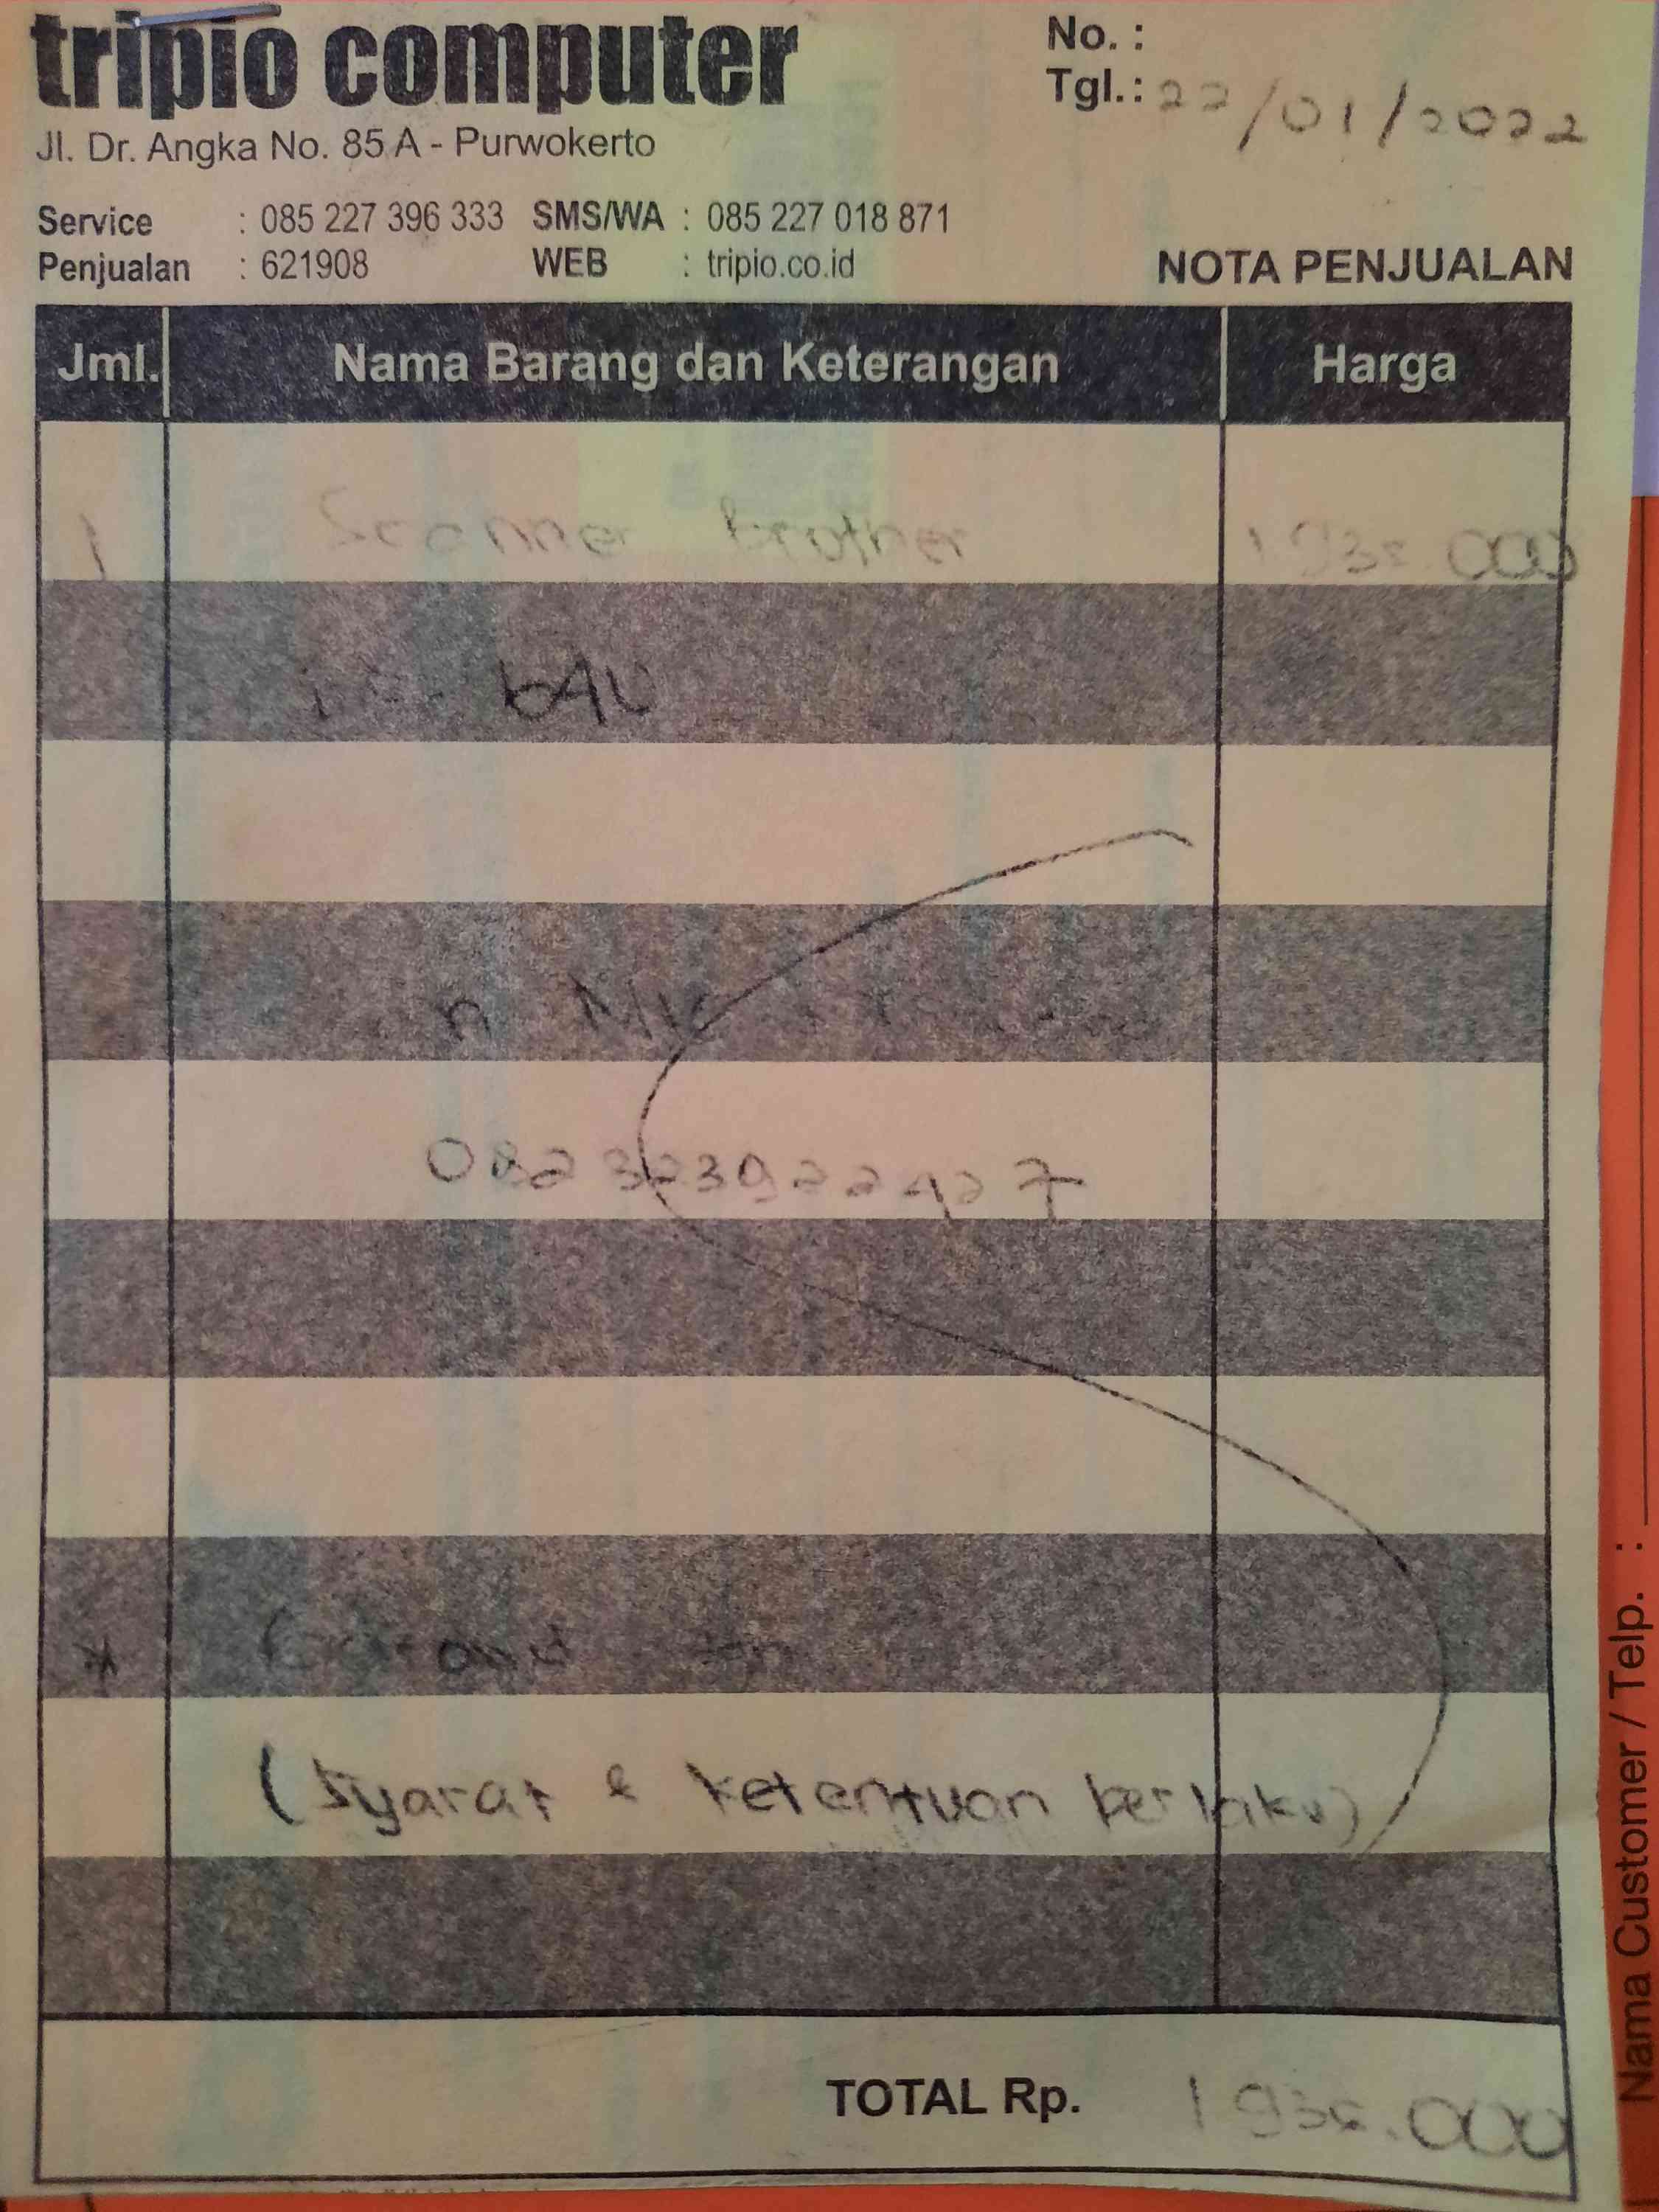 tripio computer
No. :
Tgl.: 22/01/2022
Jl. Dr. Angka No. 85 A - Purwokerto
Service : 085 227 396 333 SMS/WA : 085 227 018 871
Penjualan : 621908 WEB : tripio.co.id
NOTA PENJUALAN
Jml. Nama Barang dan Keterangan Harga
1 Scanner Brother
640
n
082323922427
*
(Syarat & ketentuan berlaku)
TOTAL Rp.
Nama Customer / Telp. :